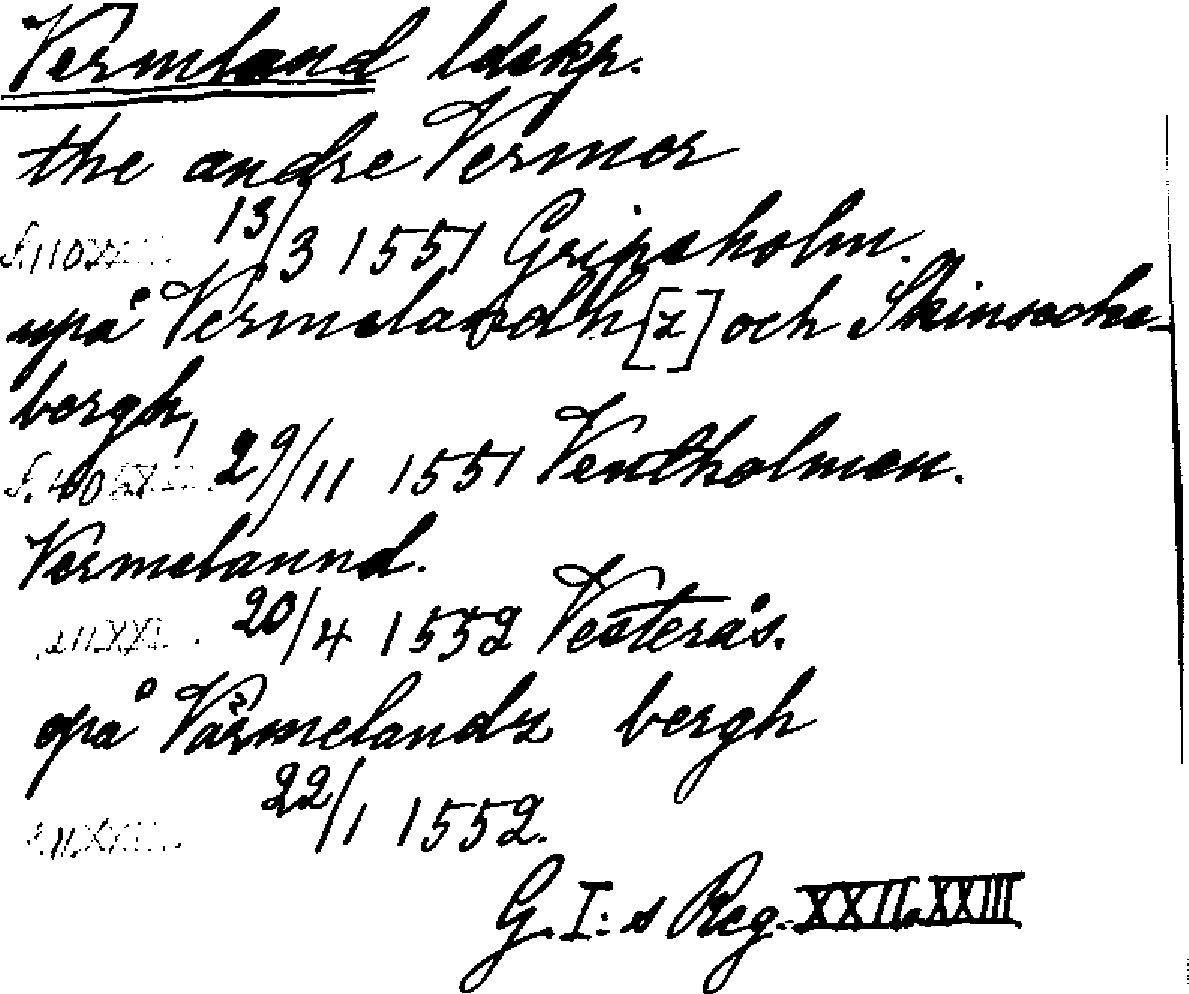 Vermland ldskp.
the andre Vermer
13/3 1551 Gripsholm.
upå Vermelandh[z] och Skinsecke-
bergh,
29/11 1551 Ventholmen.
Vermelannd.
20/4 1552 Vesterås.
opå Värmelandz bergh
22/1 1552.
G. I:s Reg. XXII, XXIII